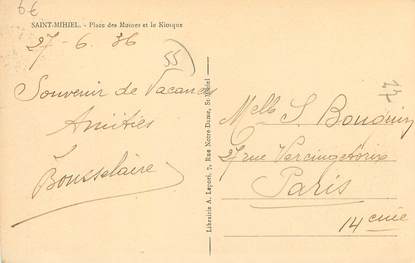 6€
SAINT-MIHIEL. - Place des Moines et le Kiosque
27-6.36
55
Souvenir de Vacances
Amitiés
Bousselaire
Librairie A. Leport, 7, Rue Notre-Dame, St-Mihiel
Melle S. Bouquin
27 rue Vercingétorix
Paris
14eme